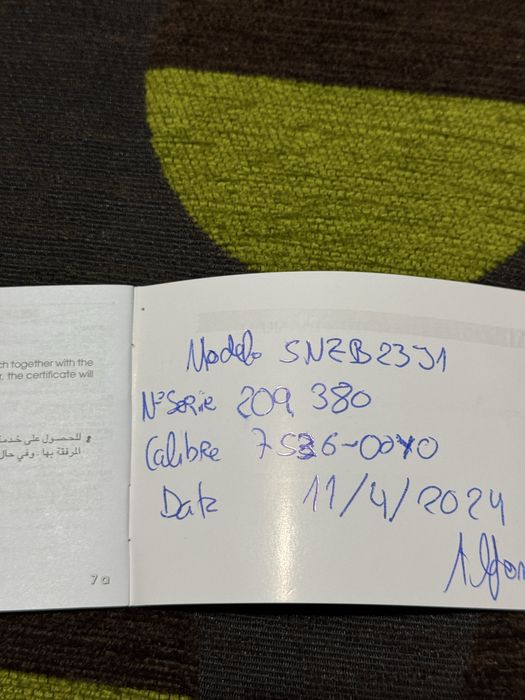 ch together with the
r, the certificate will
للحصول على خدمة
المرفقة بها. وفي حال
7
Modelo SNZB23J1
Nº Serie 209 380
Calibre 7S36-0040
Date 11/4/2024